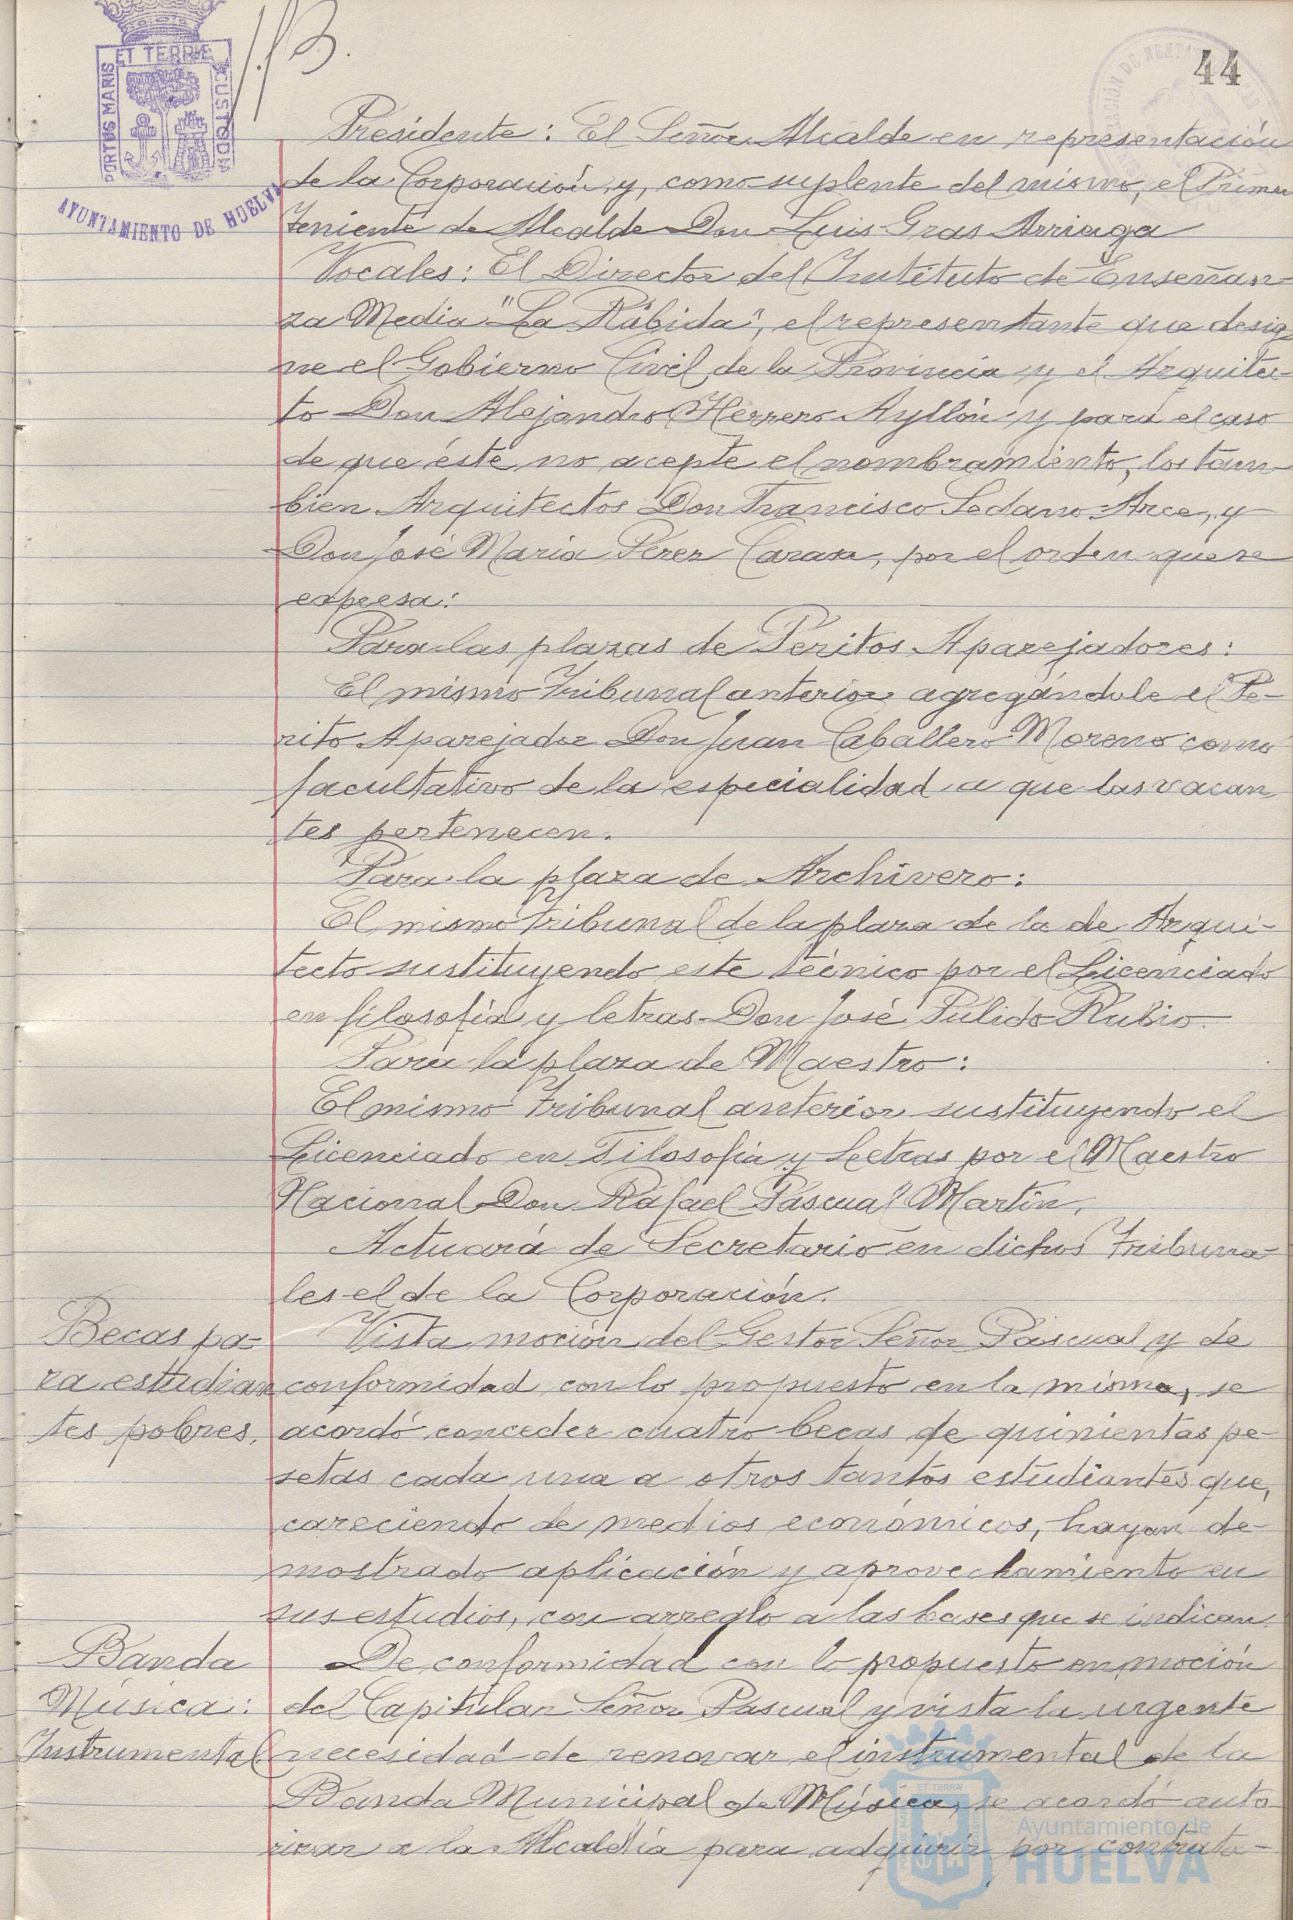 44
PORTUS MARIS ET TERRÆ CUSTODIA
AYUNTAMIENTO DE HUELVA
Presidente: El Señor Alcalde en representación
de la Corporación, y, como suplente del mismo, el Primer
Teniente de Alcalde Don Luis Gras Arriaga
Vocales: El Director del Instituto de Enseñan-
za Media "La Rábida", el representante que desig-
ne el Gobierno Civil de la Provincia y el Arquitec-
to Don Alejandro Herrero Ayllón y para el caso
de que éste no acepte el nombramiento, los tam-
bien Arquitectos Don Francisco Sedano Arce, y
Don José María Pérez Carasa, por el orden que se
expresa:
Para las plazas de Peritos Aparejadores:
El mismo Tribunal anterior agregándole el Pe-
rito Aparejador Don Juan Caballero Moreno como
facultativo de la especialidad a que las vacan
tes pertenecen.
Para la plaza de Archivero:
El mismo Tribunal de la plaza de la de Arqui-
tecto sustituyendo este técnico por el Licenciado
en filosofía y letras Don José Pulido Rubio.
Para la plaza de Maestro:
El mismo Tribunal anterior sustituyendo el
Licenciado en Filosofía y Letras por el Maestro
Nacional Don Rafael Pascual Martín.
Actuará de Secretario en dichos Tribuna-
les el de la Corporación.
Becas pa-
ra estudian
tes pobres.
Vista moción del Gestor Señor Pascual y de
conformidad con lo propuesto en la misma, se
acordó conceder cuatro becas de quinientas pe-
setas cada una a otros tantos estudiantes que,
careciendo de medios económicos, hayan de-
mostrado aplicación y aprovechamiento en
sus estudios, con arreglo a las bases que se indican.
Banda
Música:
Instrumental
De conformidad con lo propuesto en moción
del Capitular Señor Pascual y vista la urgente
necesidad de renovar el instrumental de la
Banda Municipal de Música, se acordó auto
rizar a la Alcaldía para adquirir por contrata-
Ayuntamiento de
HUELVA